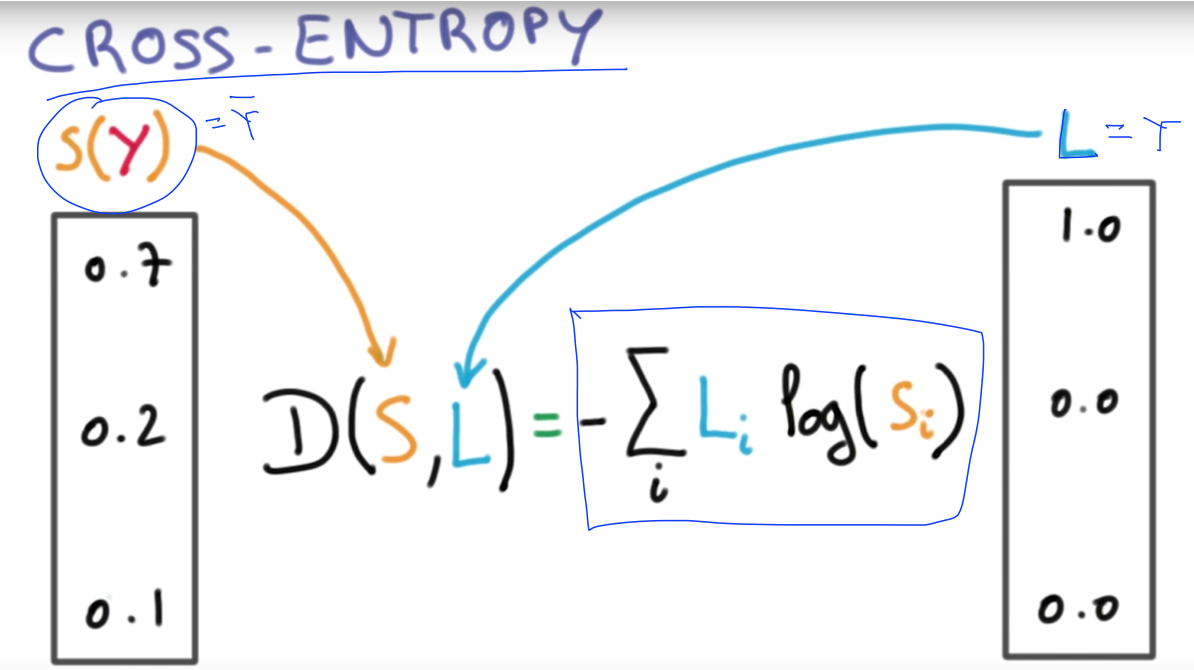 CROSS-ENTROPY
S(Y) = Y̅
L = Y
0.7
0.2
0.1
D(S,L) = -∑i Li log(Si)
1.0
0.0
0.0